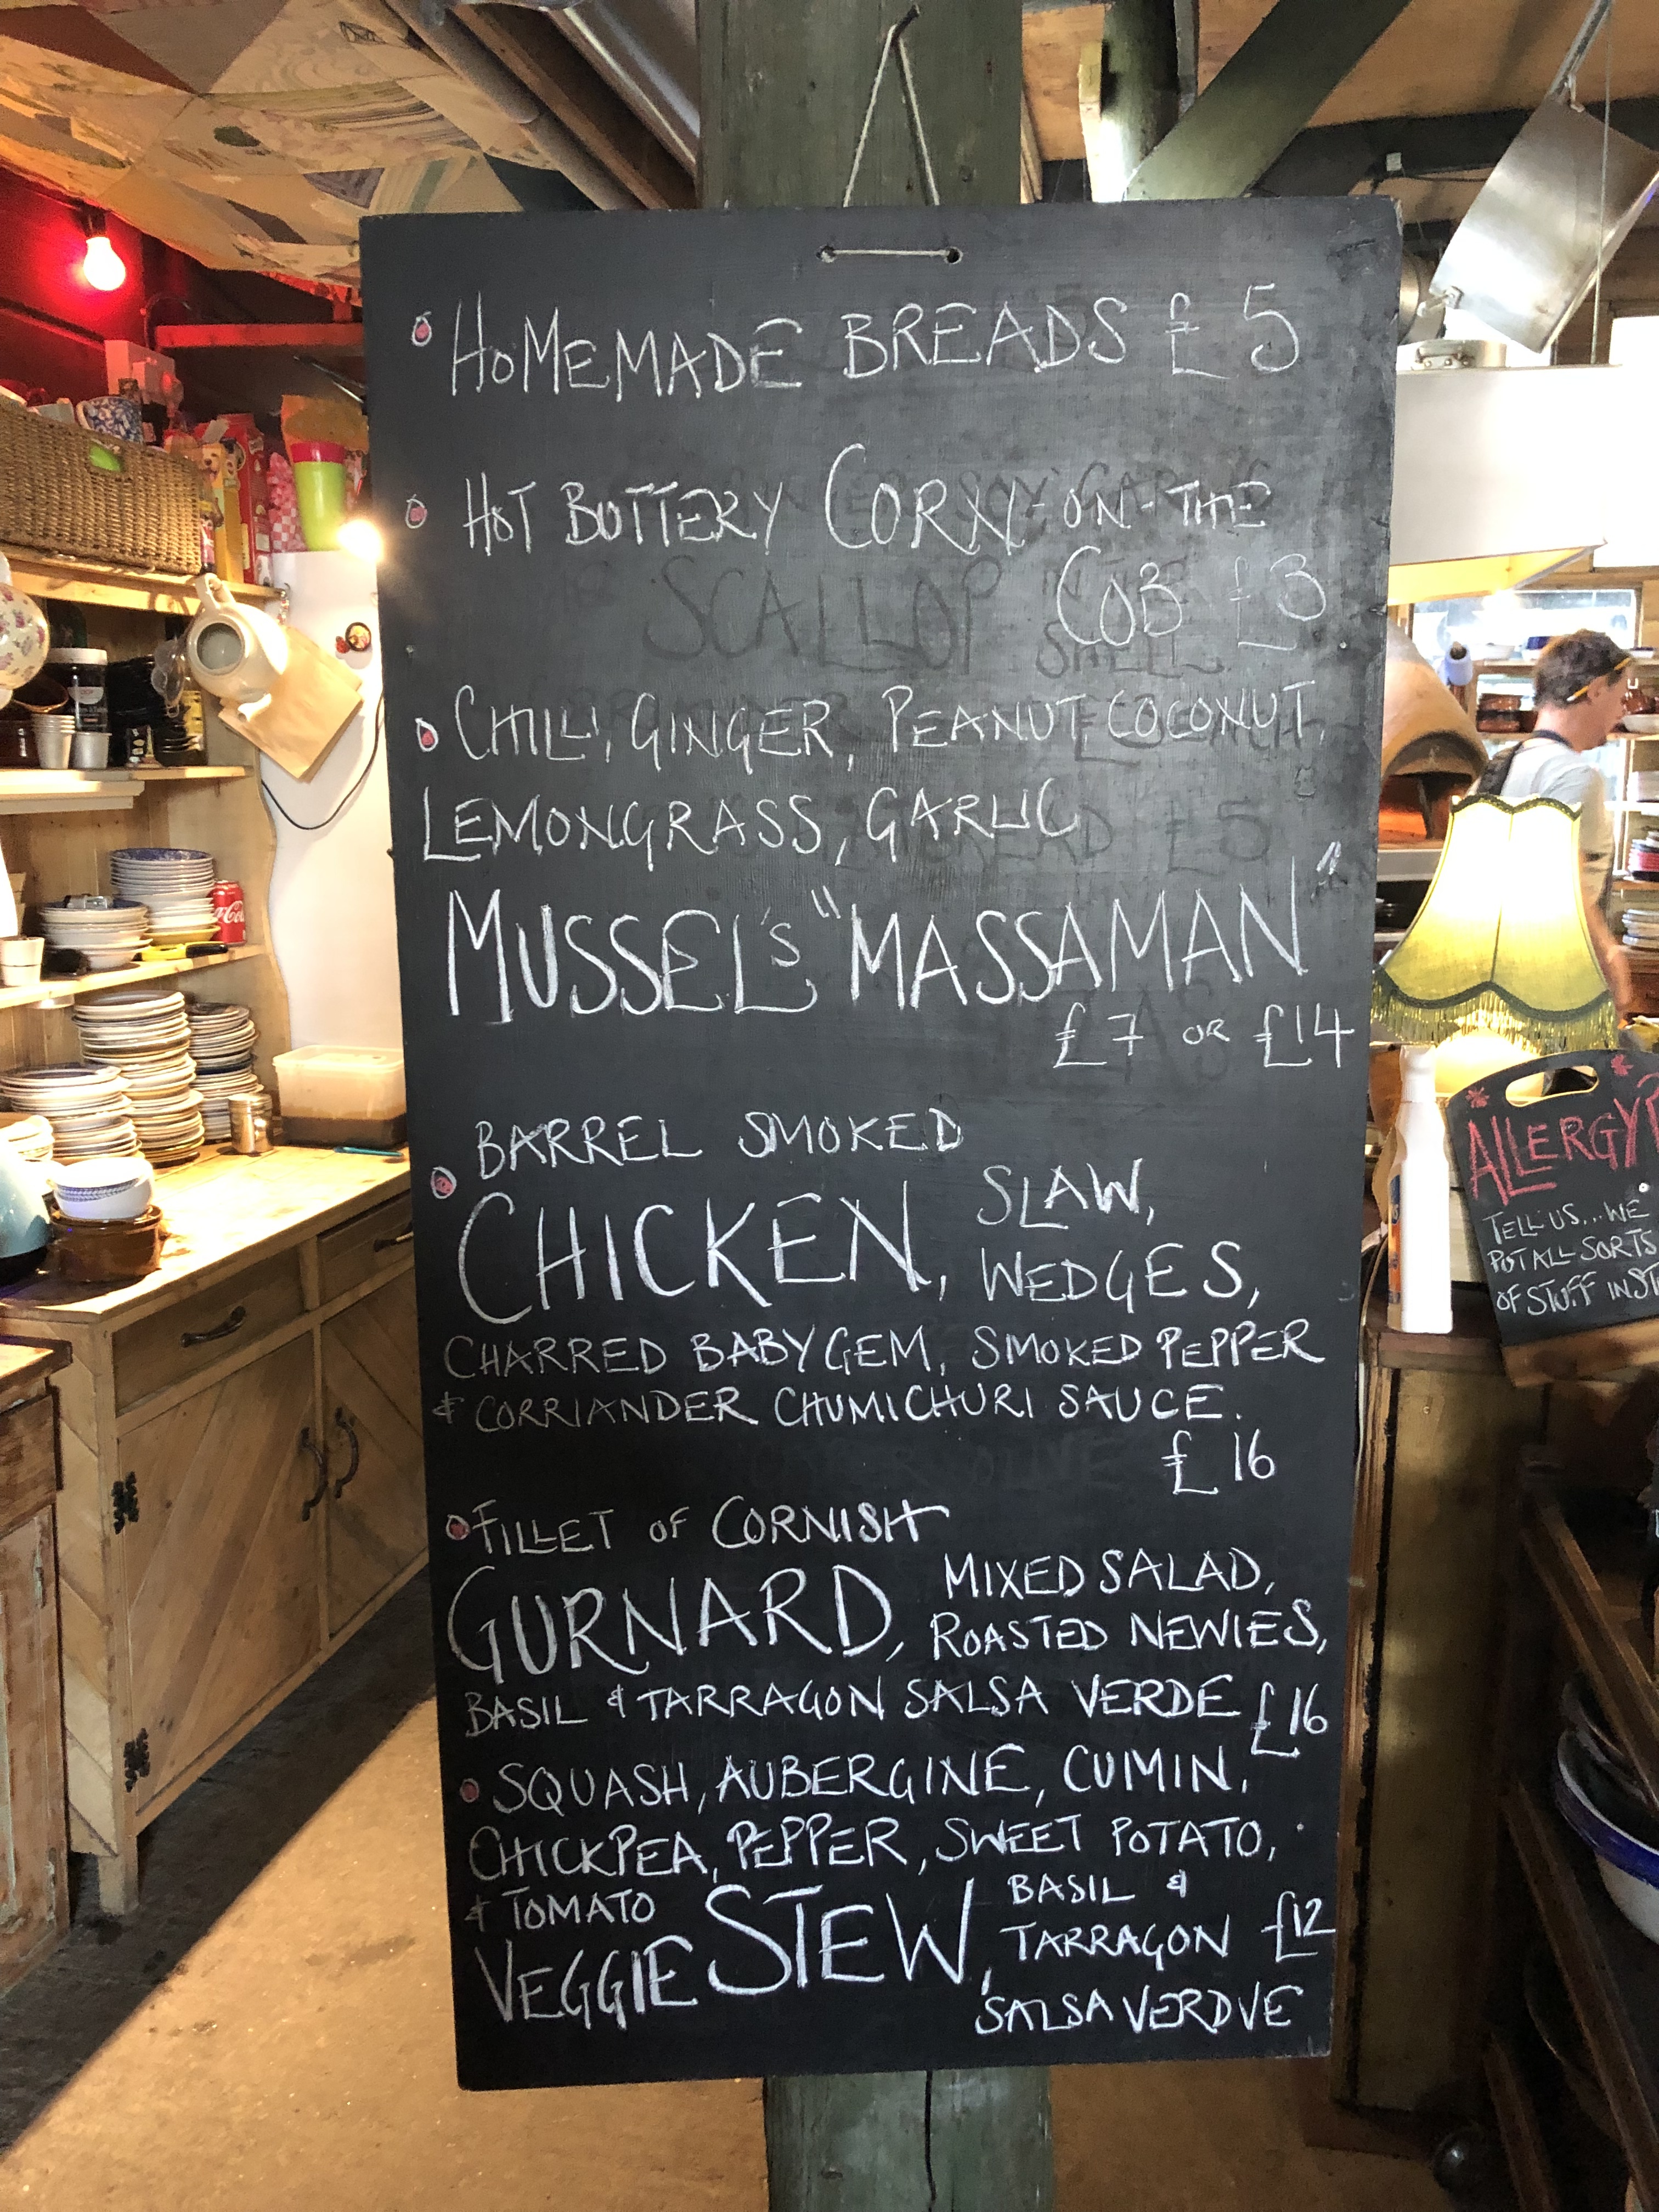 HOMEMADE BREADS £5
HOT BUTTERY CORN-ON-THE
COB £3
SCALLOP
SHELL
CHILLI, GINGER, PEANUT COCONUT,
LEMONGRASS, GARLIC
MUSSEL'S "MASSAMAN"
£7 OR £14
BARREL SMOKED
CHICKEN, SLAW,
WEDGES,
CHARRED BABY GEM, SMOKED PEPPER
& CORRIANDER CHUMICHURI SAUCE.
£16
FILLET OF CORNISH
GURNARD, MIXED SALAD,
ROASTED NEWIES,
BASIL & TARRAGON SALSA VERDE £16
SQUASH, AUBERGINE, CUMIN,
CHICKPEA, PEPPER, SWEET POTATO,
& TOMATO
VEGGIE STEW, BASIL &
TARRAGON £12
SALSA VERDVE
ALLERGY
TELL US... WE
PUT ALL SORTS
OF STUFF IN